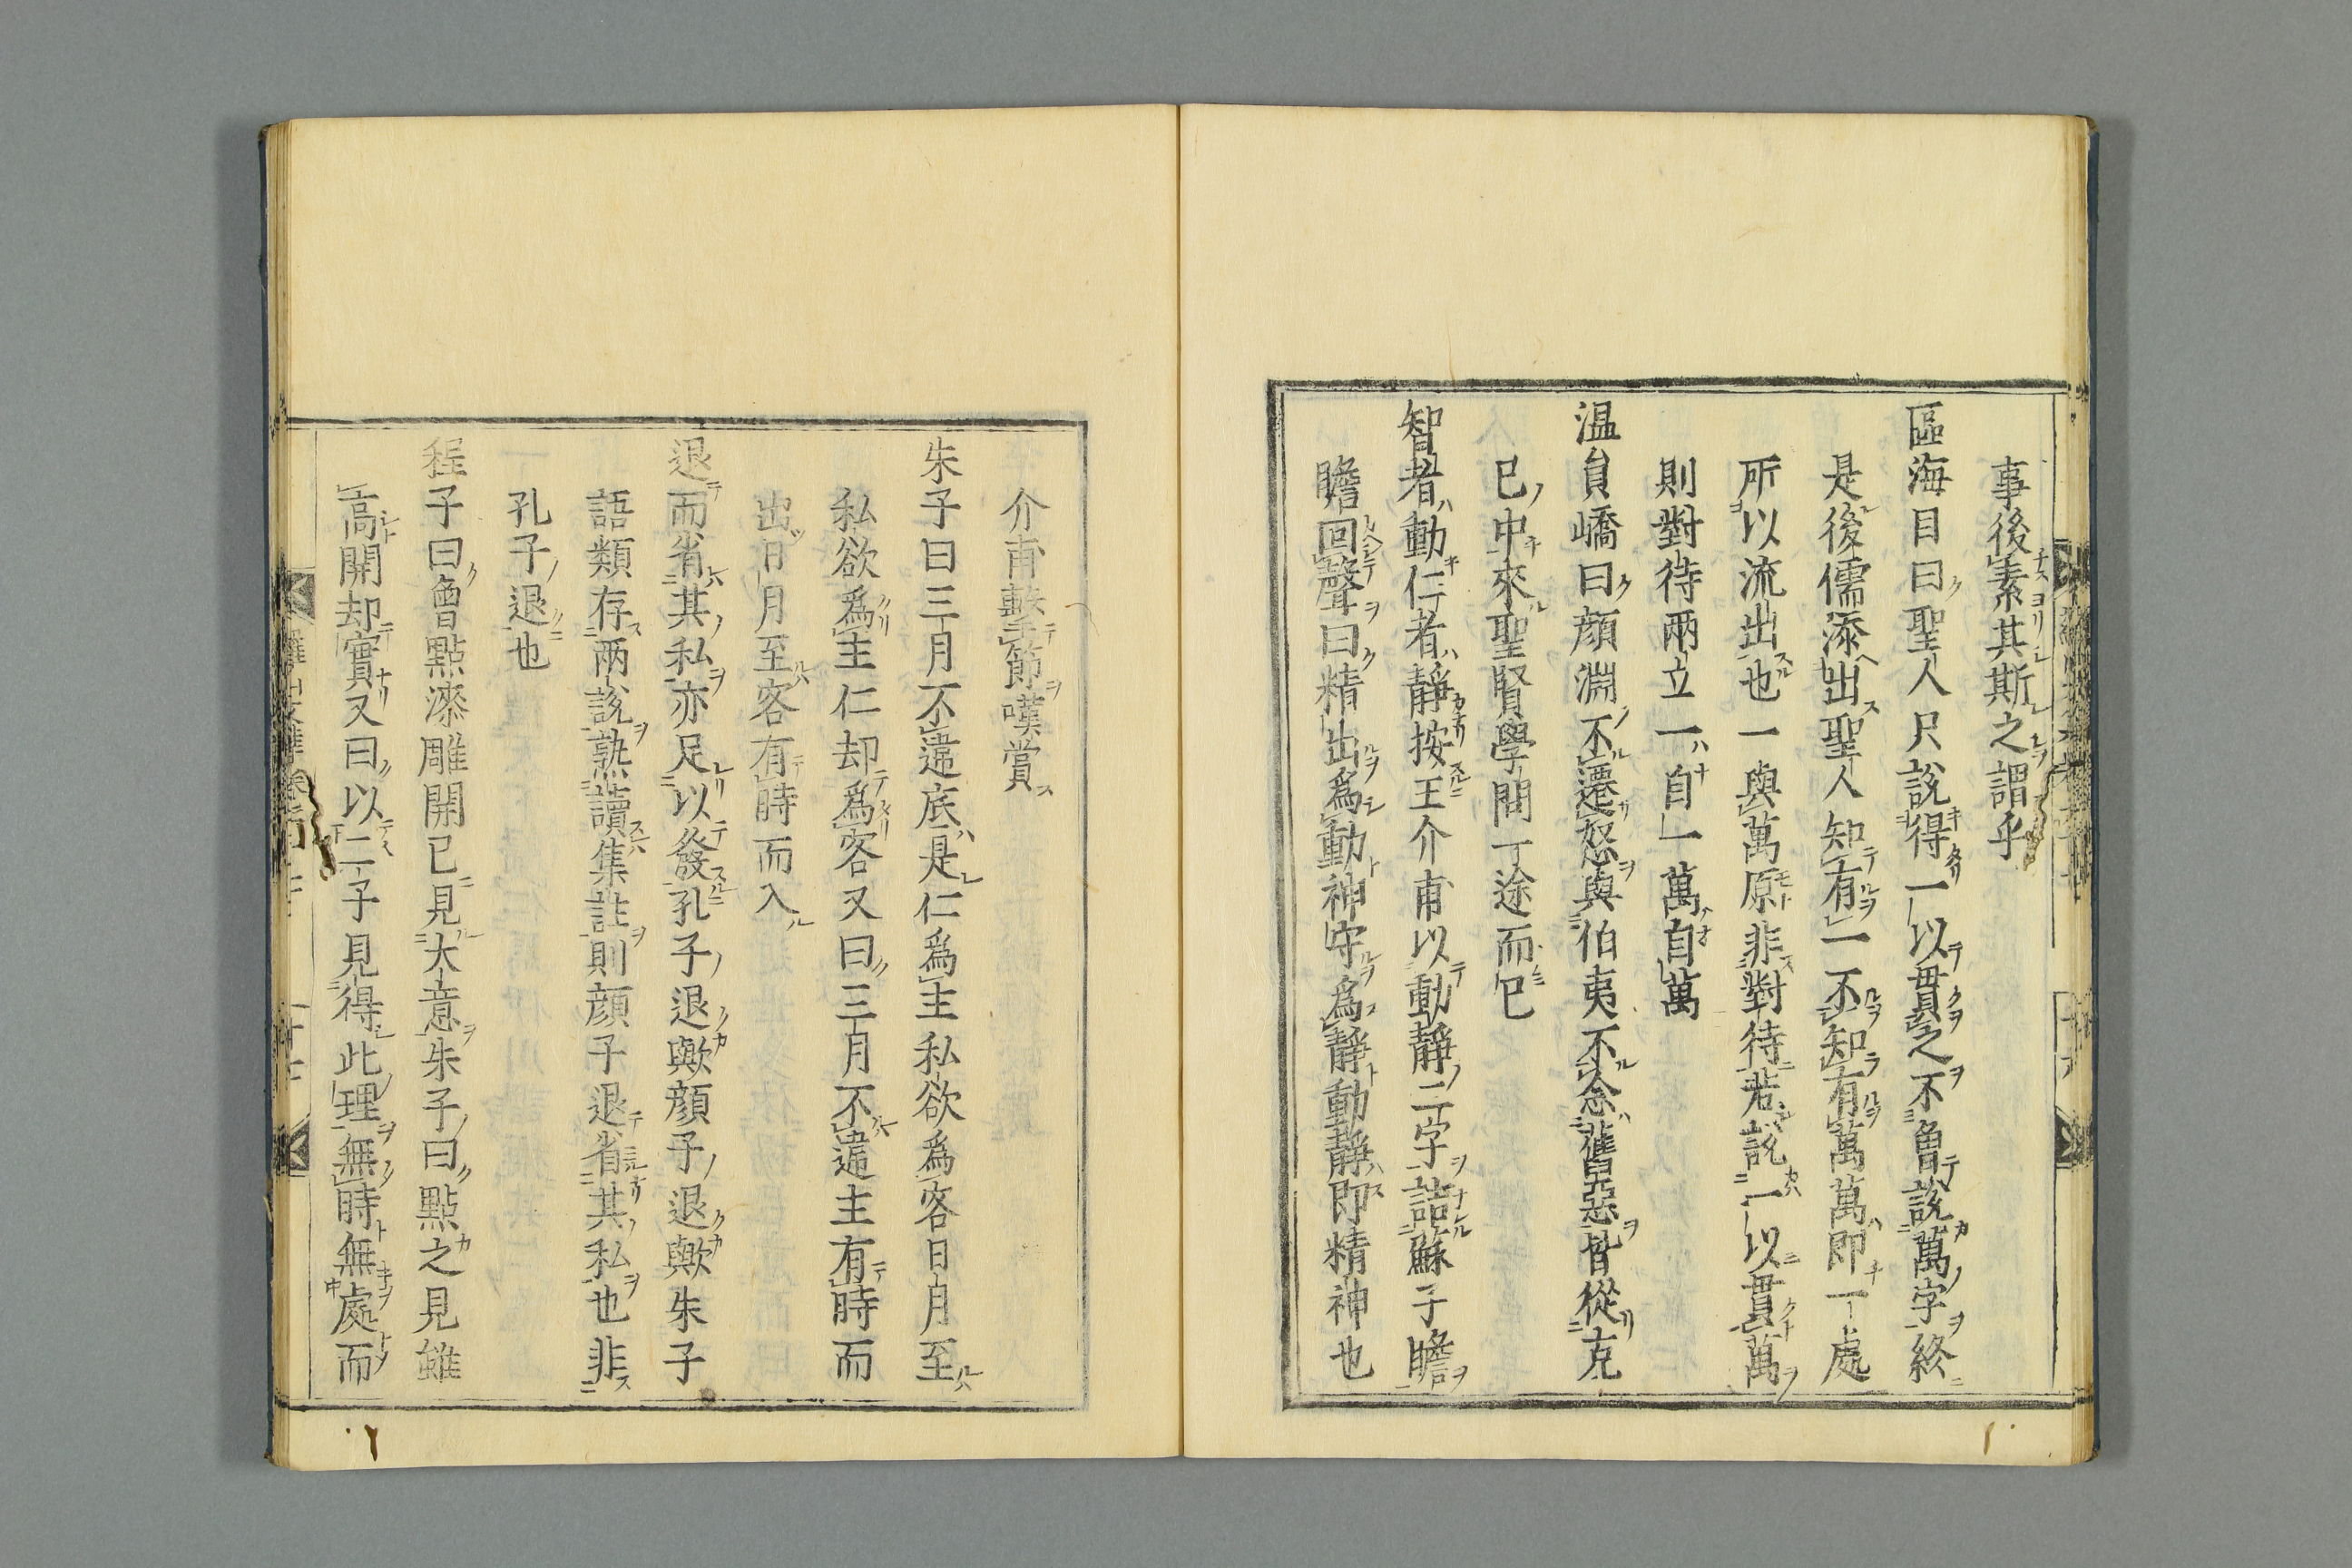 事後素其斯之謂乎
區海目曰聖人只説得一以貫之不曾説萬字終
是後儒添出聖人知有一不知有萬萬即一處
所以流出也一與萬原非對待若説一以貫萬
則對待兩立一自一萬自萬
温員嶠曰顔淵不遷怒與伯夷不念舊惡皆從克
已中來聖賢學問一途而已
智者動仁者靜按王介甫以動靜二字詰蘇子瞻
瞻回聲曰精出爲動神守爲靜動靜即精神也
介甫擊節嘆賞
朱子曰三月不違底是仁爲主私欲爲客日月至
私欲爲主仁却爲客又曰三月不違主有時而
出日月至客有時而入
退而省其私亦足以發孔子退歟顔子退歟朱子
語類存兩説熟讀集註則顔子退省其私也非
孔子退也
程子曰曾點漆雕開已見大意朱子曰點之見雖
高開却實又曰以二子見得此理無時無處而